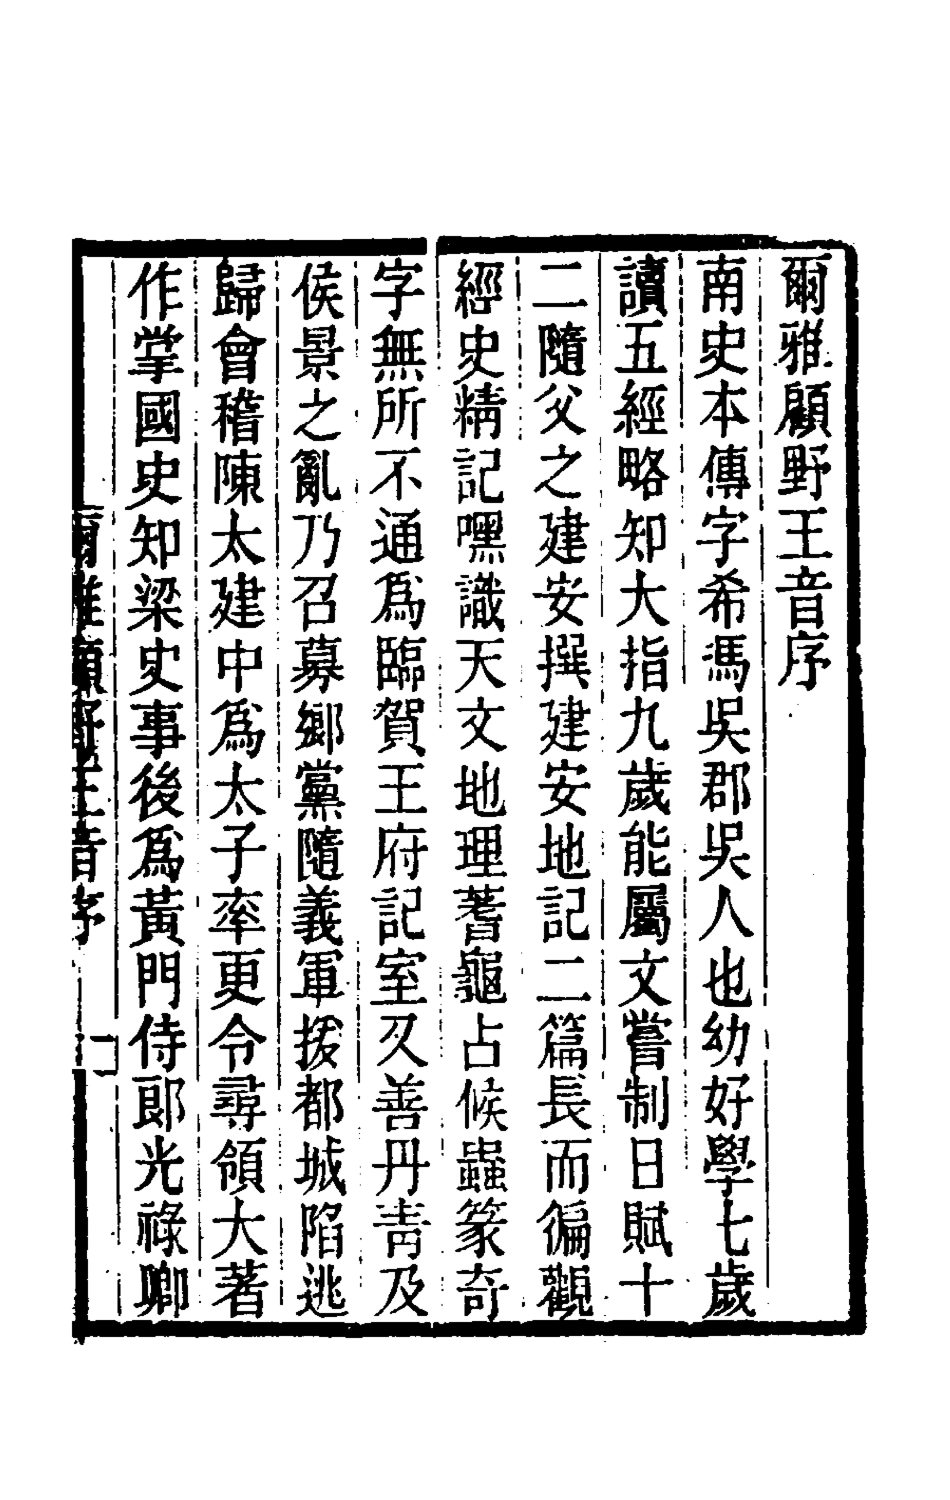 爾雅顧野王音序
南史本傳字希馮吳郡吳人也幼好學七歲
讀五經略知大指九歲能屬文嘗制日賦十
二隨父之建安撰建安地記二篇長而徧觀
經史精記嘿識天文地理蓍龜占候蟲篆奇
字無所不通爲臨賀王府記室又善丹靑及
侯景之亂乃召募鄉黨隨義軍援都城陷逃
歸會稽陳太建中爲太子率更令尋領大著
作掌國史知梁史事後爲黃門侍郎光祿卿
爾雅顧野王音序 二